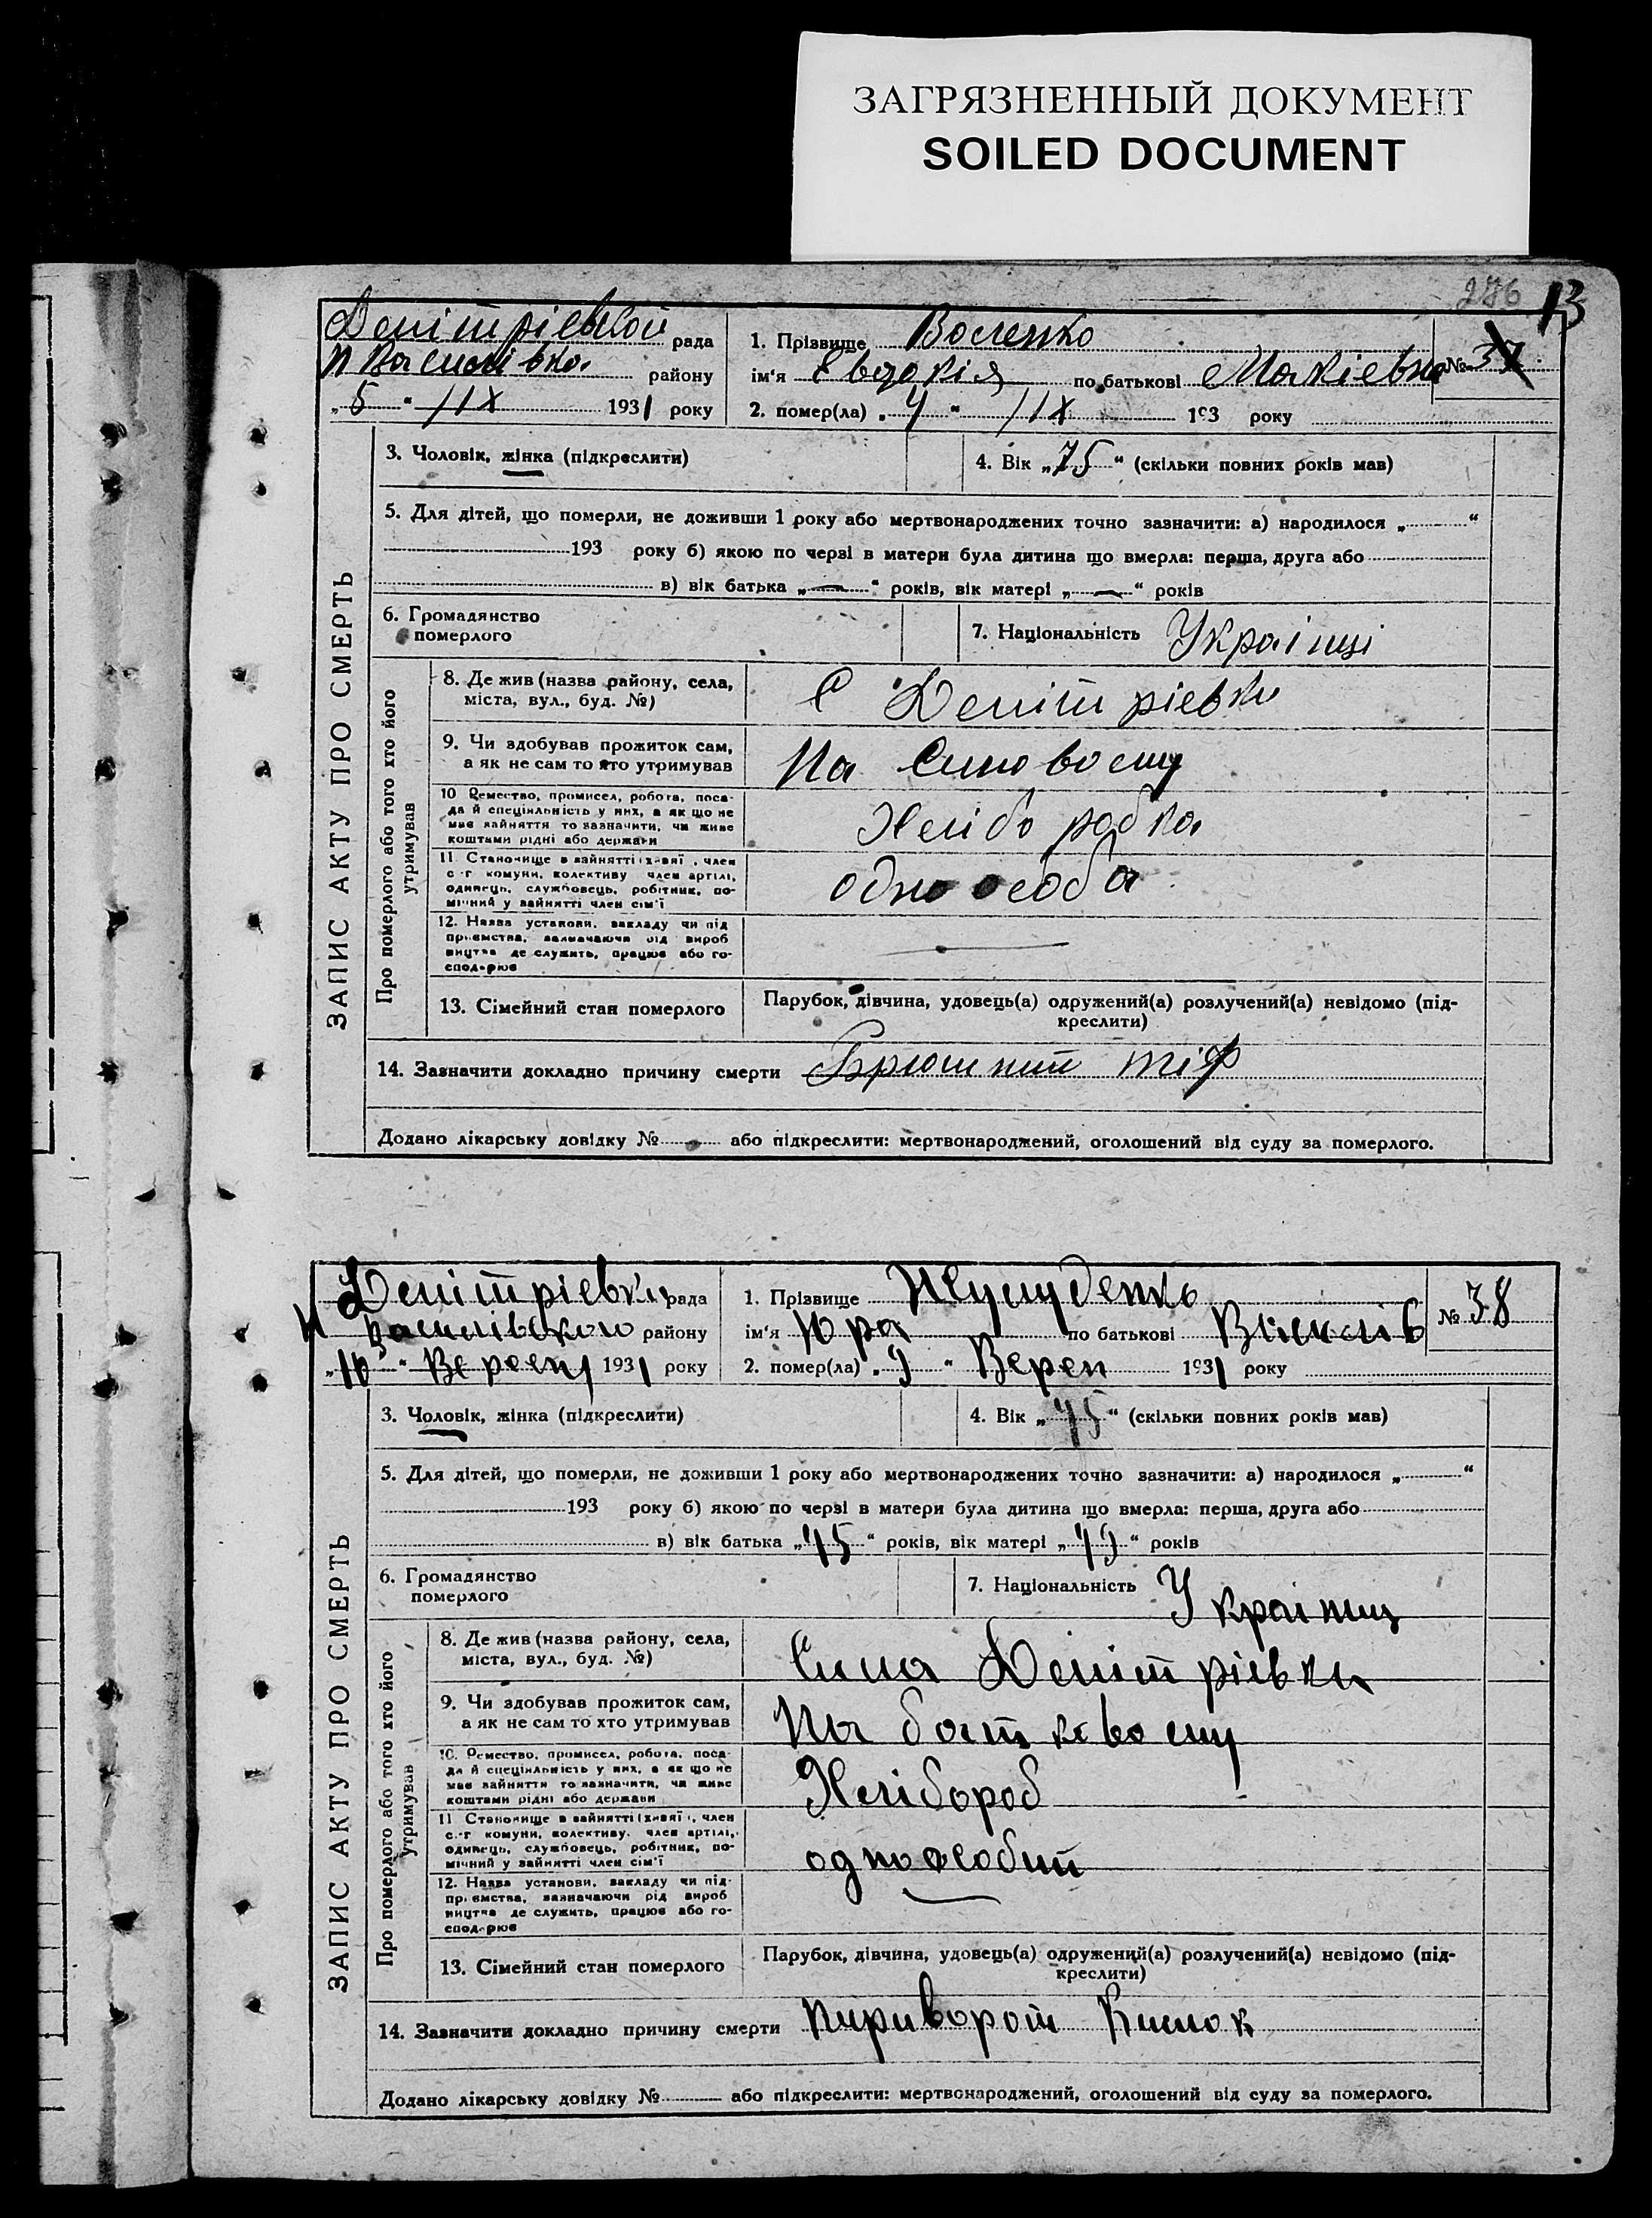 ЗАГРЯЗНЕННЫЙ ДОКУМЕНТ
SOILED DOCUMENT
276 13
Демітріевкой рада
н Василівка району
„5“ /IX 1931 року
1. Прізвище Воленко
ім'я Евдокія по батькові Макіевна
№ 37
2. помер(ла) „4“ /IX 193 року
ЗАПИС АКТУ ПРО СМЕРТЬ
3. Чоловік, жінка (підкреслити)
4. Вік „75“ (скільки повних років мав)
5. Для дітей, що померли, не доживши 1 року або мертвонароджених точно зазначити: а) народилося „ “
193 року б) якою по черзі в матери була дитина що вмерла: перша, друга або
в) вік батька „—“ років, вік матері „—“ років
6. Громадянство
померлого
7. Національність Українці
Про померлого або того хто його
утримував
8. Де жив (назва району, села,
міста, вул., буд. №)
С Демітріевки
9. Чи здобував прожиток сам,
а як не сам то хто утримував
На Синовому
10 Ремество, промисел, робота, поса-
да й спеціяльність у них, а як що не
має зайняття то зазначити, чи живе
коштами рідні або держави
Хлібо робка
11 Становище в зайнятті (хазяї, член
с-г комуни, колективу член артілі,
одинець, службовець, робітник, по-
мічний у зайнятті член сім'ї
одно особа
12. Назва установи, закладу чи під
приємства, зазначаючи рід вироб
ництва де служить, працює або го-
сподарює
13. Сімейний стан померлого
Парубок, дівчина, удовець(а) одружений(а) розлучений(а) невідомо (під-
креслити)
14. Зазначити докладно причину смерти Брюшний тіф
Додано лікарську довідку № або підкреслити: мертвонароджений, оголошений від суду за померлого.
Демітріевки рада
Н Василівского району
„10“ Вересн 1931 року
1. Прізвище
ім'я Юра по батькові Василів
№ 38
2. помер(ла) „9“ Верен 1931 року
ЗАПИС АКТУ ПРО СМЕРТЬ
3. Чоловік, жінка (підкреслити)
4. Вік „45“ (скільки повних років мав)
5. Для дітей, що померли, не доживши 1 року або мертвонароджених точно зазначити: а) народилося „ “
193 року б) якою по черзі в матери була дитина що вмерла: перша, друга або
в) вік батька „45“ років, вік матері „49“ років
6. Громадянство
померлого
7. Національність Українц
Про померлого або того хто його
утримував
8. Де жив (назва району, села,
міста, вул., буд. №)
Сила Демітріевки
9. Чи здобував прожиток сам,
а як не сам то хто утримував
На батковому
10. Ремество, промисел, робота, поса-
да й спеціяльність у них, а як що не
має зайняття то зазначити, чи живе
коштами рідні або держави
Хлібороб
11 Становище в зайнятті (хазяї, член
с-г комуни, колективу, член артілі,
одинець, службовець, робітник, по-
мічний у зайнятті член сім'ї
одноособий
12. Назва установи, закладу чи під-
приємства, зазначаючи рід вироб
ництва де служить, працює або го-
сподарює
13. Сімейний стан померлого
Парубок, дівчина, удовець(а) одружений(а) розлучений(а) невідомо (під-
креслити)
14. Зазначити докладно причину смерти пириворот Кишок
Додано лікарську довідку № або підкреслити: мертвонароджений, оголошений від суду за померлого.